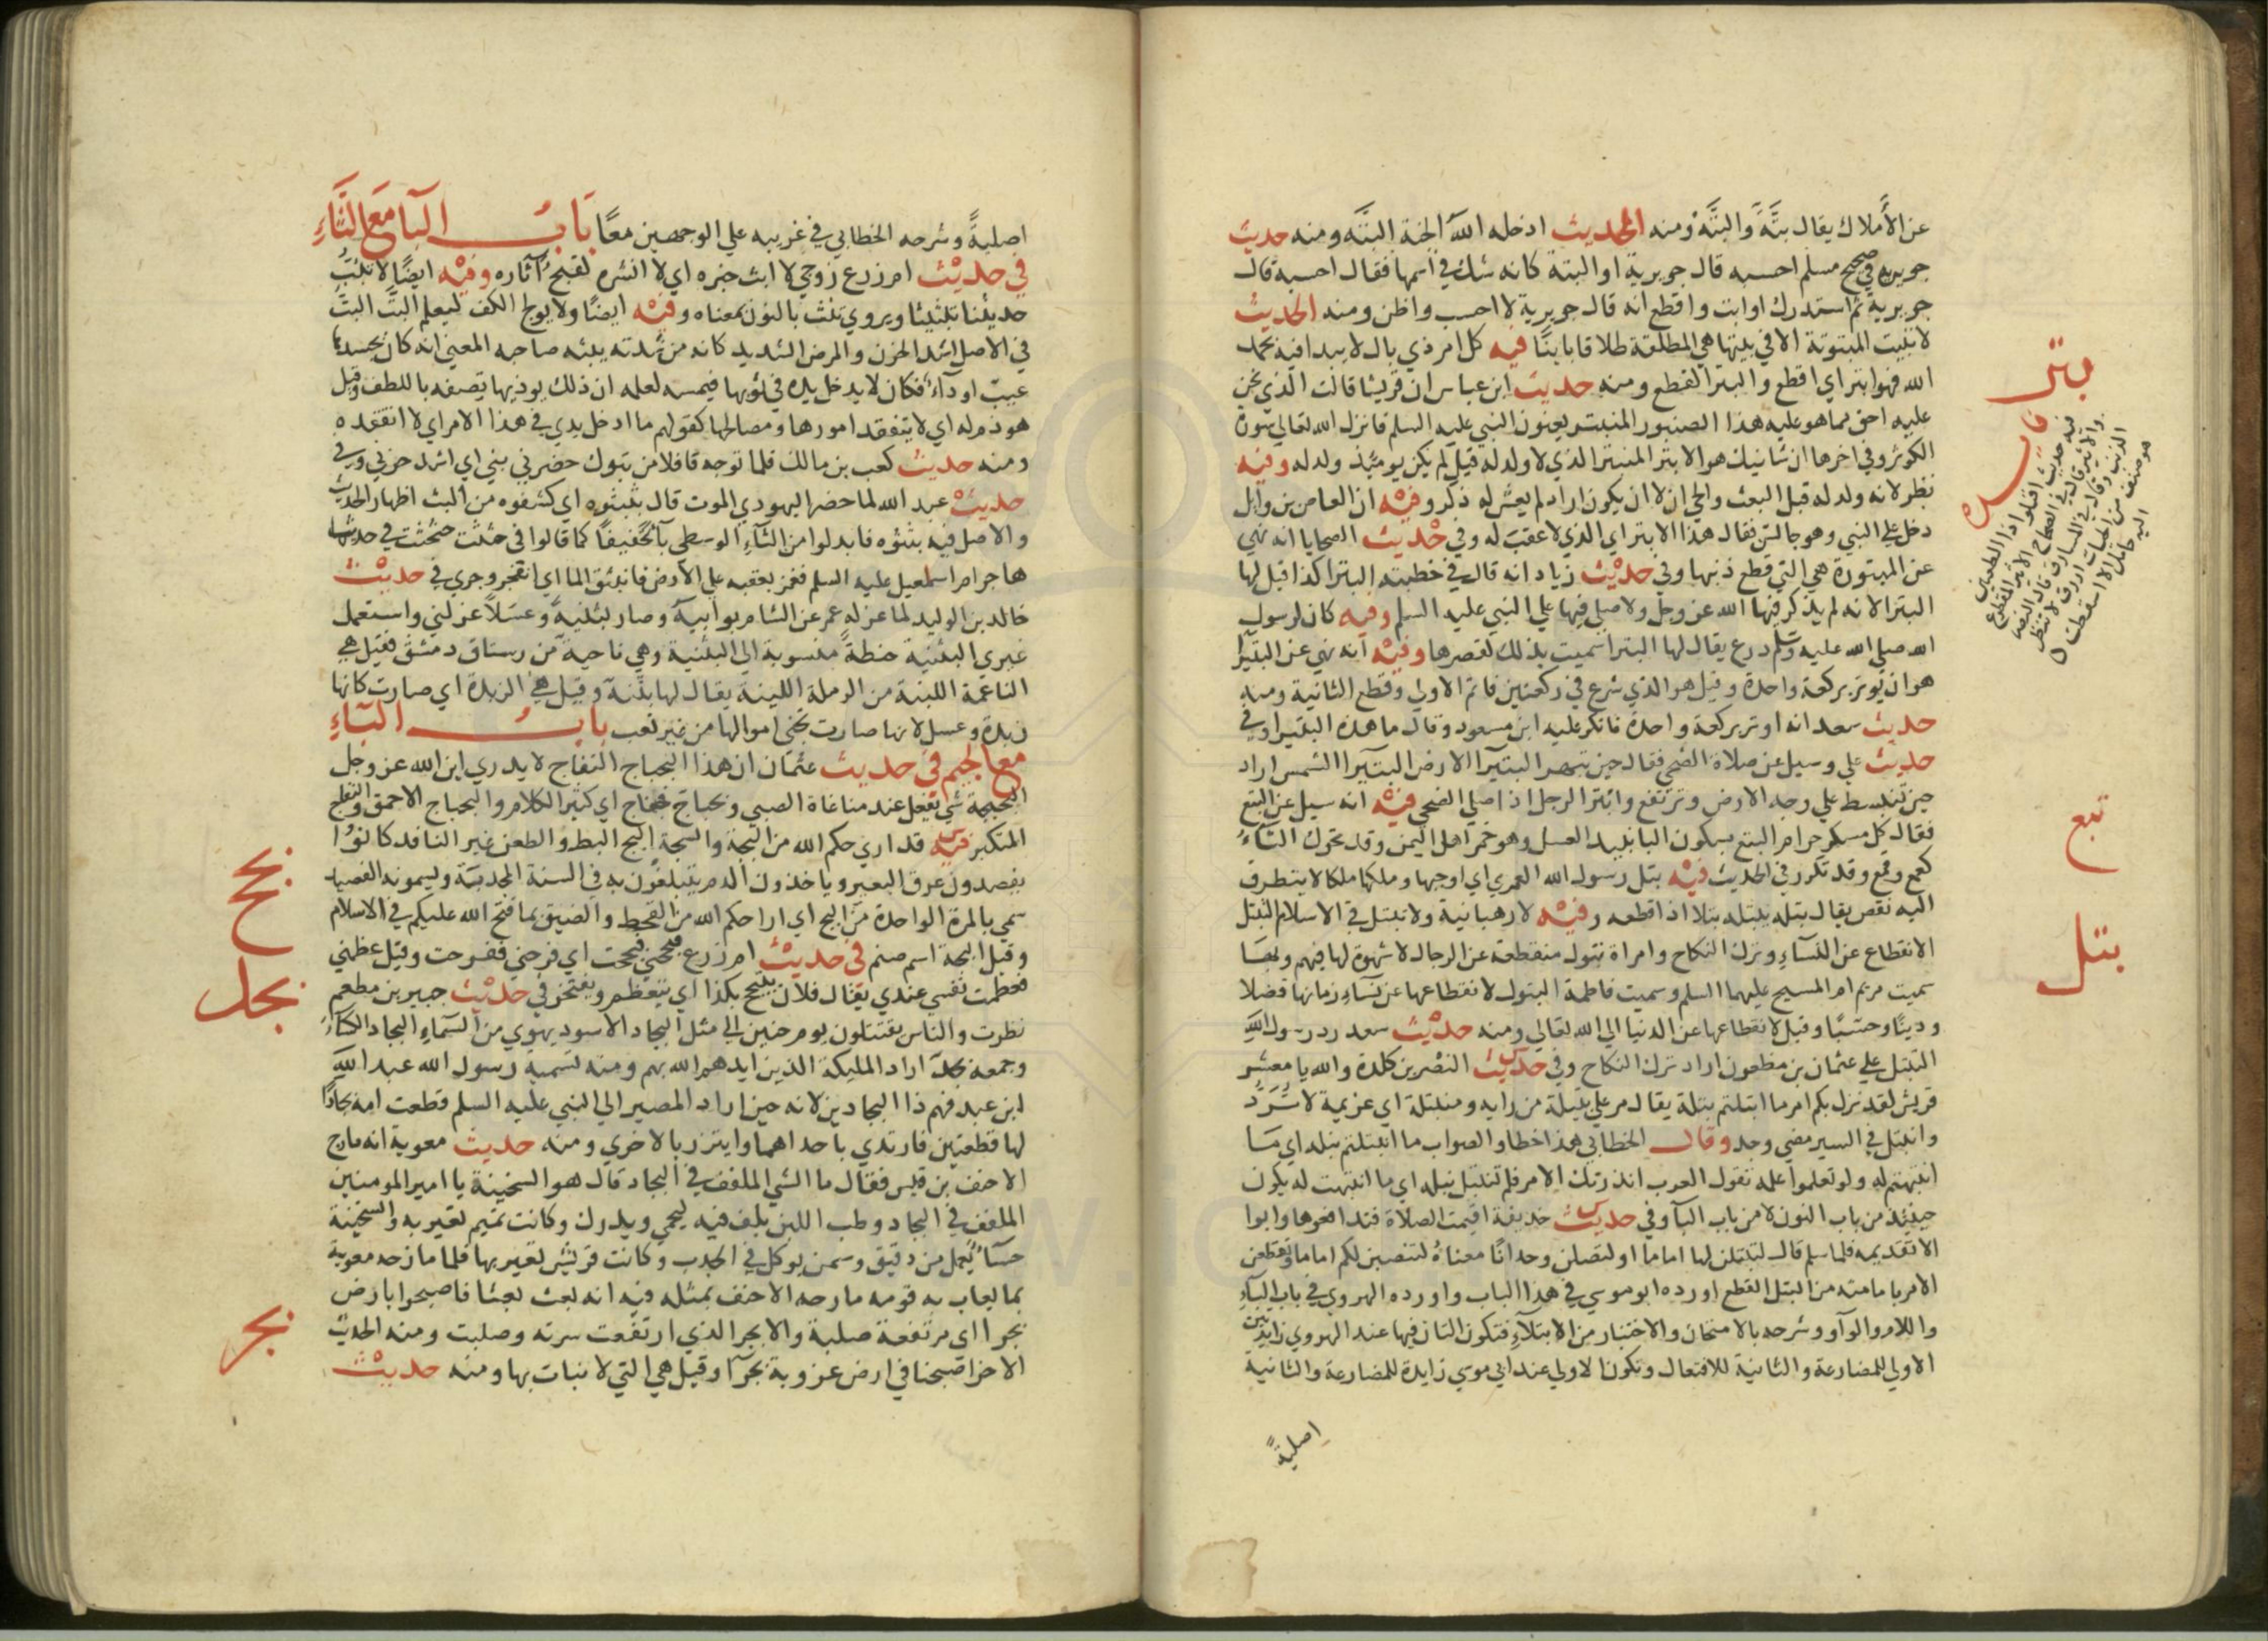 عن الأملاك يقال بتَّةً والبتَّةَ ومنه الحديث ادخله الله الجنة البتَّه ومنه حديث
جويريه في صحيح مسلم احسبه قال جويرية او البتة كانه شك في اسمها فقال احسبه قال
جويرية ثم استدرك او ابت واقطع انه قال جويرية لا احسب واظن ومنه الحديث
لا تبيت المبتوتة الا في بيتها هي المطلقة طلاقا باينًا فيه كل امر ذي بال لا يبدا فيه بحمد
الله فهو ابتر اي اقطع والبتر القطع ومنه حديث ابن عباس ان قريشا قالت الذي نحن
عليه احق مما هو عليه هذا الصنبور المنبتر يعنون النبي عليه السلم فانزل الله تعالى سورة
الكوثر وفي اخرها ان شانيك هو الابتر المنبتر الذي لا ولد له قيل لم يكن يوميذ ولد له وفيه
نظر لانه ولد له قبل البعث والوحي الا ان يكون اراد لم يعش له ذكر وفيه ان العاص بن وايل
دخل على النبي وهو جالس فقال هذا الابتر اي الذي لا عقب له وفي حديث الضحايا انه نهي
عن المبتورة هي التي قطع ذنبها وفي حديث زياد انه قال في خطبته البترا كذا قيل لها
البترا لانه لم يذكر فيها الله عز وجل ولا صلى فيها على النبي عليه السلم وفيه كان لرسول
الله صلى الله عليه وسلم درع يقال لها البترا سميت بذلك لقصرها وفيه انه نهي عن البتيرا
هو ان يوتر بركعة واحدة وقيل هو الذي شرع في ركعتين فاتم الاولى وقطع الثانية ومنه
حديث سعد انه اوتر بركعة واحدة فانكر عليه ابن مسعود وقال ما هذه البتيرا وفي
حديث علي وسيل عن صلاة الضحى فقال حين تبهر البتيرا الارض البتيرا الشمس اراد
حين تنبسط على وجه الارض وترتفع وابتر الرجل اذا صلى الضحى فيه انه سيل عن البتع
فقال كل مسكر حرام البتع بسكون التا نبيد العسل وهو خمر اهل اليمن وقد تحرك التاء
كقمع وقمع وقد تكرر في الحديث فيه بتل رسول الله العمري اي اوجبها وملكها ملكا لا يتطرق
اليه نقص يقال بتله يبتله بتلا اذا قطعه وفيه لا رهبانية ولا تبتل في الاسلام التبتل
الانقطاع عن النساء وترك النكاح وامراة بتول منقطعة عن الرجال لا شهوة لها فيهم وبها
سميت مريم ام المسيح عليهما السلم وسميت فاطمة البتول لانقطاعها عن نساء زمانها فضلا
ودينًا وحسبًا وقيل لانقطاعها عن الدنيا الى الله تعالى ومنه حديث سعد رد رسول الله
التبتل على عثمان بن مظعون اراد ترك النكاح وفي حديث النضر بن كلدة والله يا معشر
قريش لقد نزل بكم امر ما ابتلتم بتلة يقال مر على بتيلة من رايه ومنبتلة اي عزيمة لا تُرَدُّ
وانبتل في السير مضى وجد وقال الخطابي هذا خطا والصواب ما انتبلتم نبله اي ما
انتبهتم له ولو تعلموا علمه تقول العرب انذرتك الامر فلم تنتبل نبله اي ما انتبهت له يكون
حينئذ من باب النون لا من باب البآ وفي حديث حذيفة اقيمت الصلاة فتدافعوها وابوا
الا تقديمه فلما سلم قال لتبتلن لها اماما او لتصلن وحدانًا معناه لتنصبن لكم اماما وتقطعن
الامر بامامته من البتل القطع اورده ابو موسي في هذا الباب واورده الهروي في باب الباء
واللام والوآو وشرحه بالامتحان والاختبار من الابتلآءِ فتكون التان فيها عند الهروي زايدتين
الاولى للمضارعة والثانية للافتعال وتكون الاولى عند ابي موسي زايدة للمضارعة والثانية
اصليةً
بتر
بتع
بتل
اصليةً وشرحه الخطابي في غريبه على الوجهين معًا بَابُ البا مَعَ الثَّاءِ
في حديث ام زرع زوجي لا ابث خبره اي لا انشره لقبح آثاره وفيه ايضًا لا تبث
حديثنا تبثيثا ويروي تنث بالنون بمعناه وفيه ايضًا ولا يولج الكف ليعلم البثَّ البث
في الاصل اشد الحزن والمرض الشديد كانه من شدته يبثه صاحبه المعني انه كان بجسدها
عيب او دآءٌ فكان لا يدخل يده في ثوبها فيمسه لعلمه ان ذلك يوذيها تصفه باللطف وقيل
هو ذم له اي لا يتفقد امورها ومصالحها كقولهم ما ادخل يدي في هذا الامر اي لا اتفقده
ومنه حديث كعب بن مالك فلما توجه قافلا من تبوك حضرني بثي اي اشد حزني وفي
حديث عبد الله لما حضر اليهودي الموت قال بثبثوه اي كشفوه من البث اظهار الحديث
والاصل فيه بثثوه فابدلوا من الثاءِ الوسطى باءً تخفيفًا كما قالوا في حثثت حثحثت في حديث
هاجر ام اسمعيل عليه السلم فغمز بعقبه على الارض فانبثق الما اي انفجر وجري في حديث
خالد بن الوليد لما عزله عمر عن الشام بوانيه وصار بثنيةً وعسَلاً عزلني واستعمل
غيري البثنية حنطةٌ منسوبة الى البثنية وهي ناحية من رستاق دمشق فقيل هي
الناعمة اللينة من الرملة اللينة يقال لها بثنة وقيل هي الزبدة اي صارت كانها
زبدة وعسل لانها صارت تجني اموالها من غير تعب بابُ البآءِ
مع الجيم في حديث عثمان ان هذا البجباج النفاج لا يدري اين الله عز وجل
البجبجة شي يفعل عند مناغاة الصبي وبجباج فجفاج اي كثير الكلام والبجباج الاحمق والنفاج
المتكبر فيه قد اراحكم الله من البجة والسجة البج البط والطعن غير النافد كانوا
يفصدون عرق البعير وياخذون الدم يتبلغون به في السنة المجدبة ويسمونه الفصيد
سمي بالمرة الواحدة من البج اي اراحكم الله من القحط والضيق بما فتح الله عليكم في الاسلام
وقيل البجة اسم صنم في حديث ام زرع وبجحني فبجحت اي فرحني ففرحت وقيل عظمني
فعظمت نفسي عندي يقال فلان يتبجح بكذا اي يتعظم ويفتخر في حديث جبير بن مطعم
نظرت والناس يقتتلون يوم حنين الى مثل البجاد الاسود يهوي من السماءِ البجاد الكساءُ
وجمعه بجد اراد المليكة الذين ايدهم الله بهم ومنه تسمية رسول الله عبد الله
ابن عبد فهم ذا البجادين لانه حين اراد المصير الى النبي عليه السلم قطعت امه بجادًا
لها قطعتين فارتدي باحداهما وايتزر بالاخري ومنه حديث معوية انه مازح
الاحنف بن قيس فقال ما الشي الملفف في البجاد قال هو السخينة يا امير المومنين
الملفف في البجاد وطب اللبن يلف فيه ليحمي ويدرك وكانت تميم تعير به والسخينة
حسآءٌ يُعمل من دقيق وسمن يوكل في الجدب وكانت قريش تعير بها فلما مازحه معوية
بما يعاب به قومه مازحه الاحنف بمثله فيه انه بعث بعثا فاصبحوا بارض
بجرا اي مرتفعة صلبة والابجر الذي ارتفعت سرته وصلبت ومنه الحديث
الاخر اصبحنا في ارض عزوبة بجرآ وقيل هي التي لا نبات بها ومنه حديث
بجح
بجد
بجر